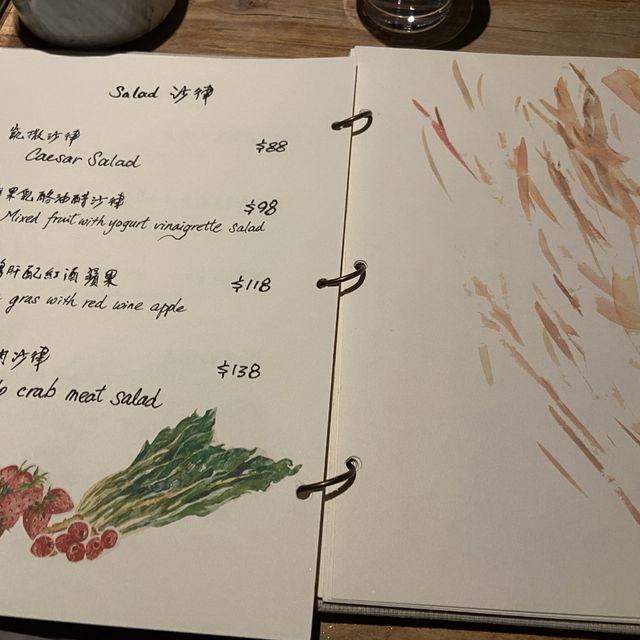 Salad 沙律
凱撒沙律 $88
Caesar Salad
果乳酪油醋沙律 $98
Mixed fruit with yogurt vinaigrette salad
肝配紅酒蘋果 $118
gras with red wine apple
肉沙律 $138
crab meat salad